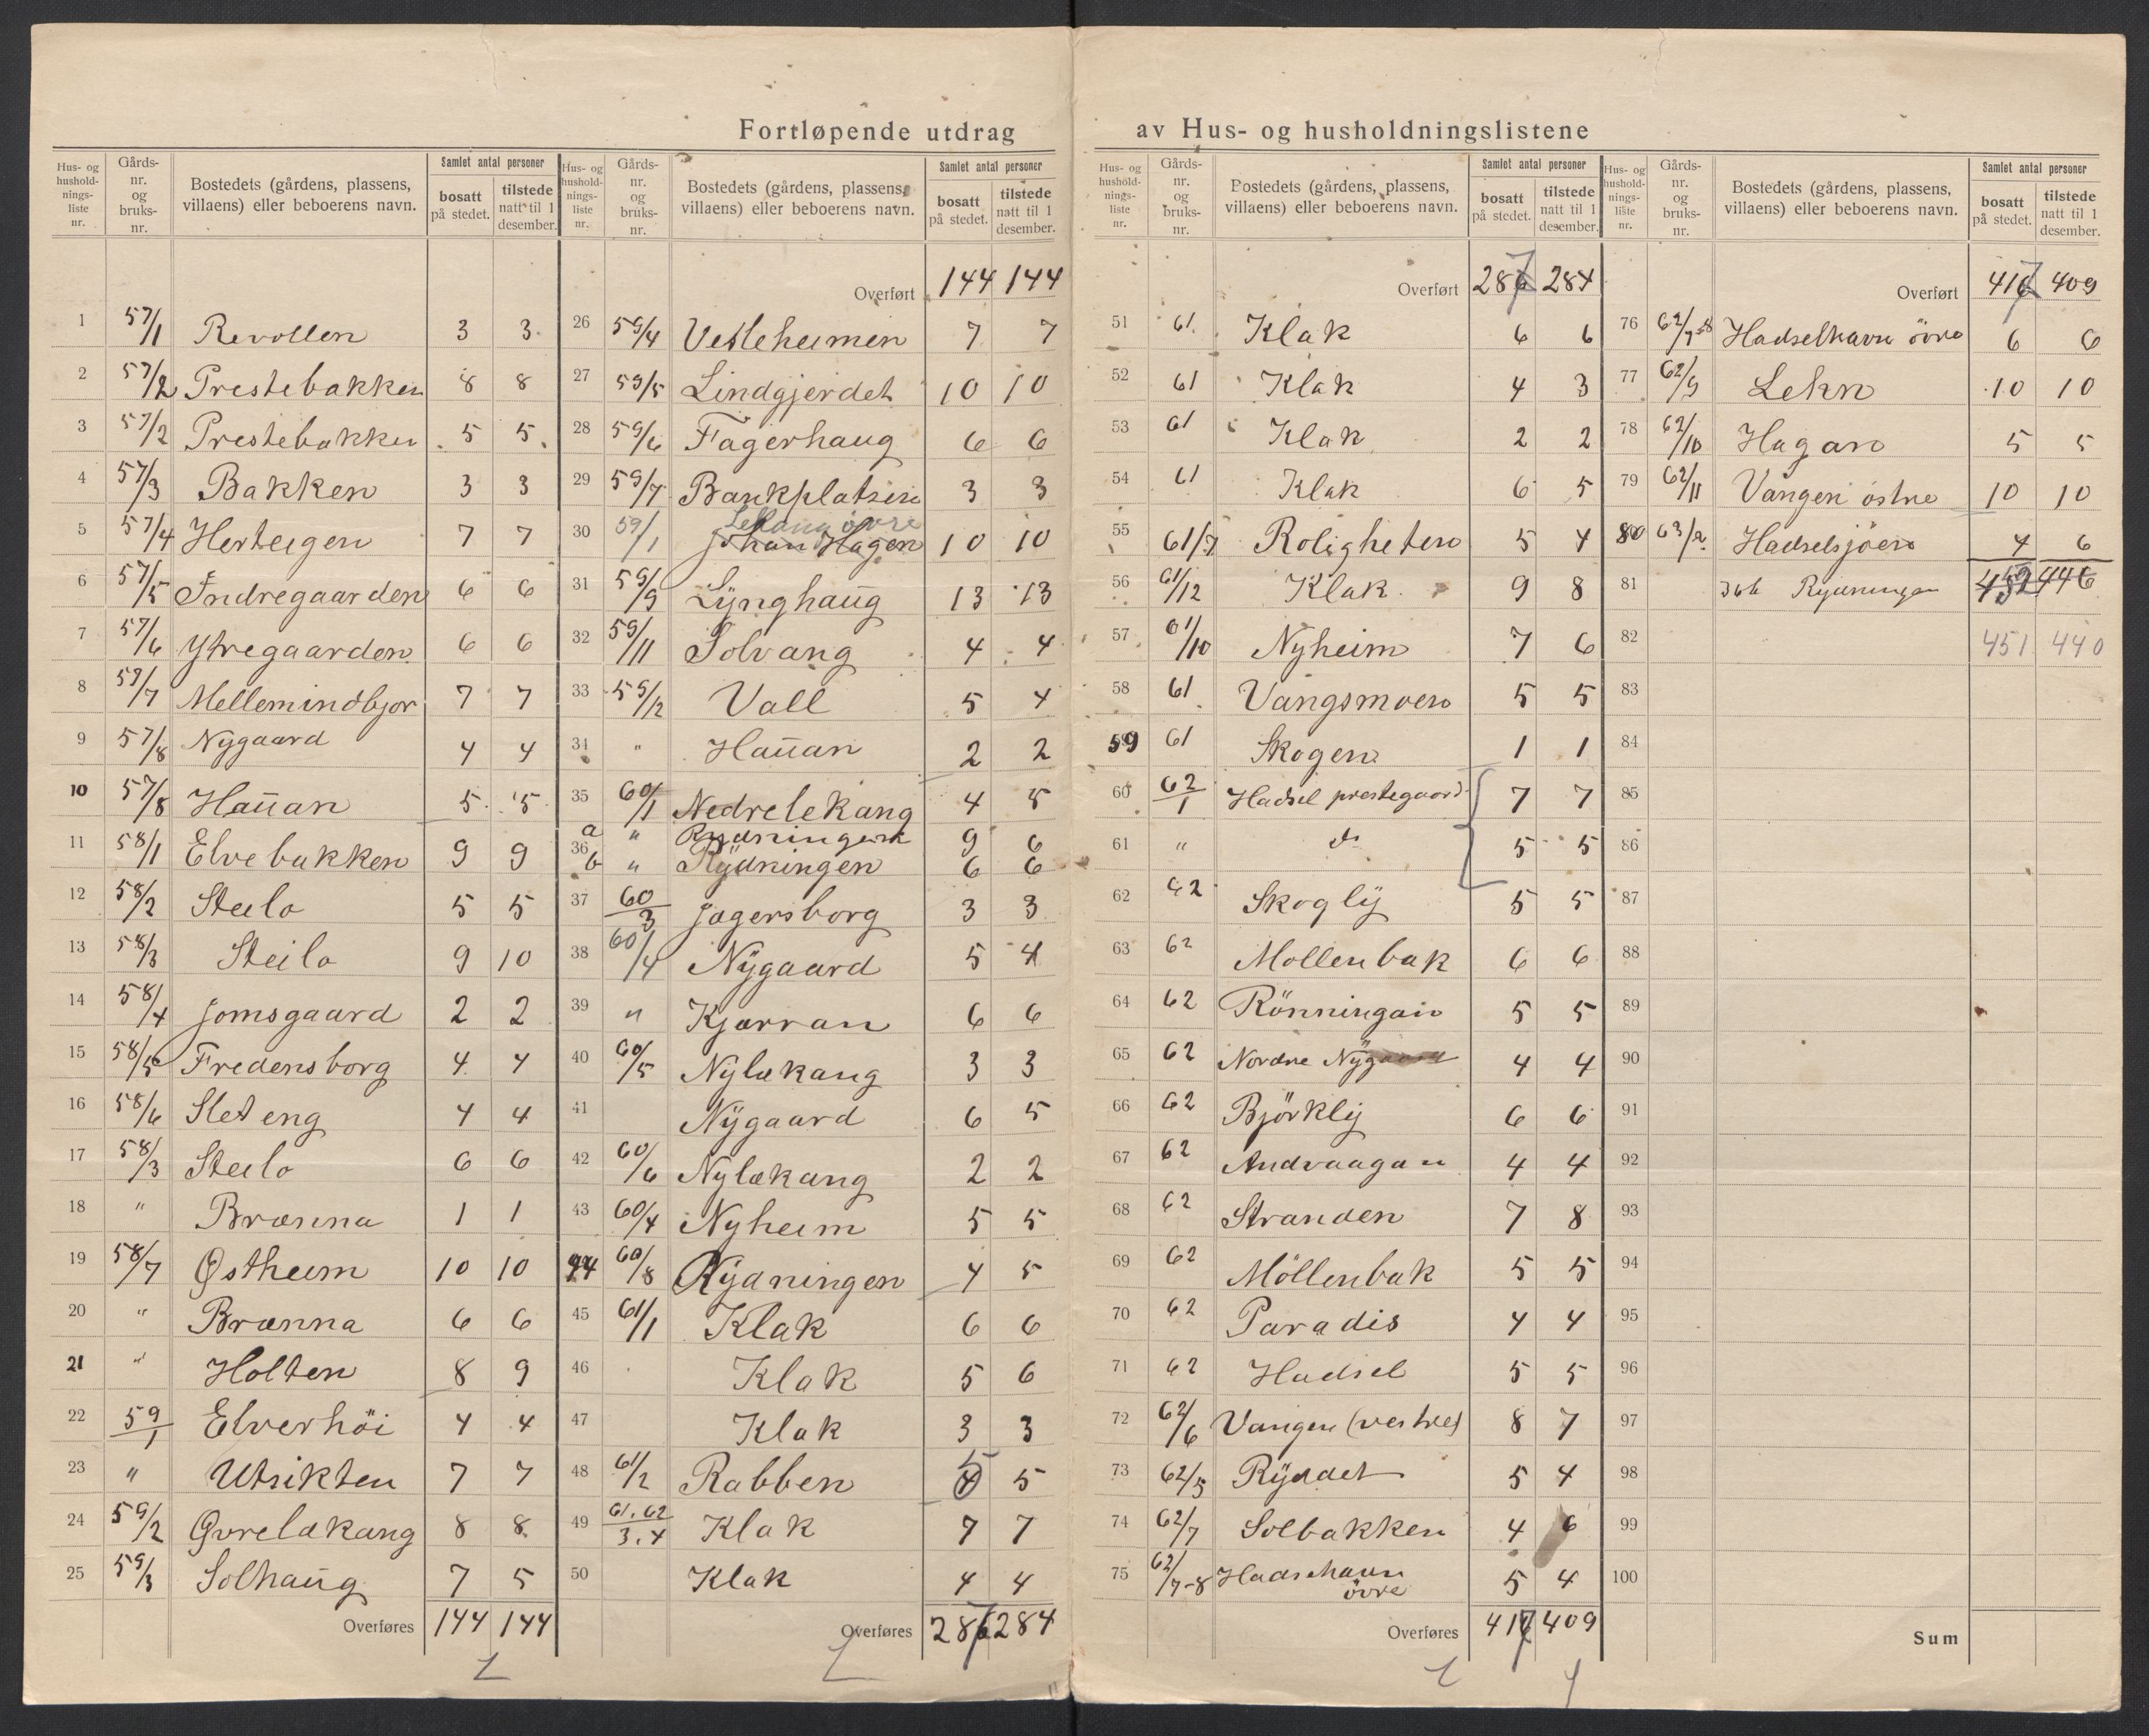 Fortløpende utdrag av Hus- og husholdningslistene
Hus- og husholdningsliste nr. | Gårds- nr. og bruks- nr. | Bostedets (gårdens, plassens, villaens) eller beboerens navn. | Samlet antal personer | bosatt på stedet. | tilstede natt til 1 desember.
1 57/1 Revollen 3 3
2 57/2 Prestebakken 8 8
3 57/2 Prestebakken 5 5
4 57/3 Bakken 3 3
5 57/4 Herteigen 7 7
6 57/5 Indregaarden 6 6
7 57/6 Ytregaarden 6 6
8 57/7 Mellemindbjor 7 7
9 57/8 Nygaard 4 4
10 57/8 Hauan 5 5
11 58/1 Elvebakken 9 9
12 58/2 Steilo 5 5
13 58/3 Steilo 9 10
14 58/4 Jomsgaard 2 2
15 58/5 Fredensborg 4 4
16 58/6 Sleteng 4 4
17 58/3 Steilo 6 6
18 " Brænna 1 1
19 58/7 Østheim 10 10
20 " Brænna 6 6
21 " Holten 8 9
22 59/1 Elverhöi 4 4
23 " Utsikten 7 7
24 59/2 Øvrelækang 8 8
25 59/3 Solhaug 7 5
Overføres 144 144
Hus- og husholdningsliste nr. | Gårds- nr. og bruks- nr. | Bostedets (gårdens, plassens, villaens) eller beboerens navn. | Samlet antal personer | bosatt på stedet. | tilstede natt til 1 desember.
Overført 144 144
26 59/4 Vesleheimen 7 7
27 59/5 Lindgjerdet 10 10
28 59/6 Fagerhaug 6 6
29 59/7 Bankplatsen 3 3
30 59/1 Lekang øvre Johan Hagen 10 10
31 59/9 Lynghaug 13 13
32 59/11 Solvang 4 4
33 59/12 Vall 5 4
34 " Hauan 2 2
35 60/1 Nedrelekang 4 5
36 a " Rydningen 9 6
b " Rydningen 6 6
37 60/3 Jægersborg 3 3
38 60/4 Nygaard 5 4
39 " Kjærran 6 6
40 60/5 Nylækang 3 3
41 Nygaard 6 5
42 60/6 Nylækang 2 2
43 60/4 Nyheim 5 5
44 60/8 Rydningen 4 5
45 61/1 Klak 6 6
46 Klak 5 6
47 Klak 3 3
48 61/2 Rabben 4 5 5
49 61.62/3.4 Klak 7 7
50 Klak 4 4
Overføres 287 284
Hus- og husholdningsliste nr. | Gårds- nr. og bruks- nr. | Bostedets (gårdens, plassens, villaens) eller beboerens navn. | Samlet antal personer | bosatt på stedet. | tilstede natt til 1 desember.
Overført 287 284
51 61 Klak 6 6
52 61 Klak 4 3
53 61 Klak 2 2
54 61 Klak 6 5
55 61/7 Roligheten 5 4
56 61/12 Klak 9 8
57 61/10 Nyheim 7 6
58 61 Vangsmoen 5 5
59 61 Skogen 1 1
60 62/1 Hadsel prestegaard 7 7
61 " do 5 5
62 62 Skogly 5 5
63 62 Mollenbak 6 6
64 62 Rönningan 5 5
65 62 Nordre Nygaard 4 4
66 62 Björkly 6 6
67 62 Andvaagan 4 4
68 62 Stranden 7 8
69 62 Möllenbak 5 5
70 62 Paradis 4 4
71 62 Hadsel 5 5
72 62/6 Vangen (vestre) 8 7
73 62/5 Ryddet 5 4
74 62/7 Solbakken 4 6
75 62/7-8 Hadselhavn övre 5 4
Overføres 417 409
Hus- og husholdningsliste nr. | Gårds- nr. og bruks- nr. | Bostedets (gårdens, plassens, villaens) eller beboerens navn. | Samlet antal personer | bosatt på stedet. | tilstede natt til 1 desember.
Overført 417 409
76 62/7-8 Hadselhavn övre 6 6
77 62/9 Lekn 10 10
78 62/10 Hagan 5 5
79 62/11 Vangen östre 10 10
80 63/2 Hadselsjöen 4 6
81 36b Rydningen 452 446
82 451 440
83
84
85
86
87
88
89
90
91
92
93
94
95
96
97
98
99
100
Sum